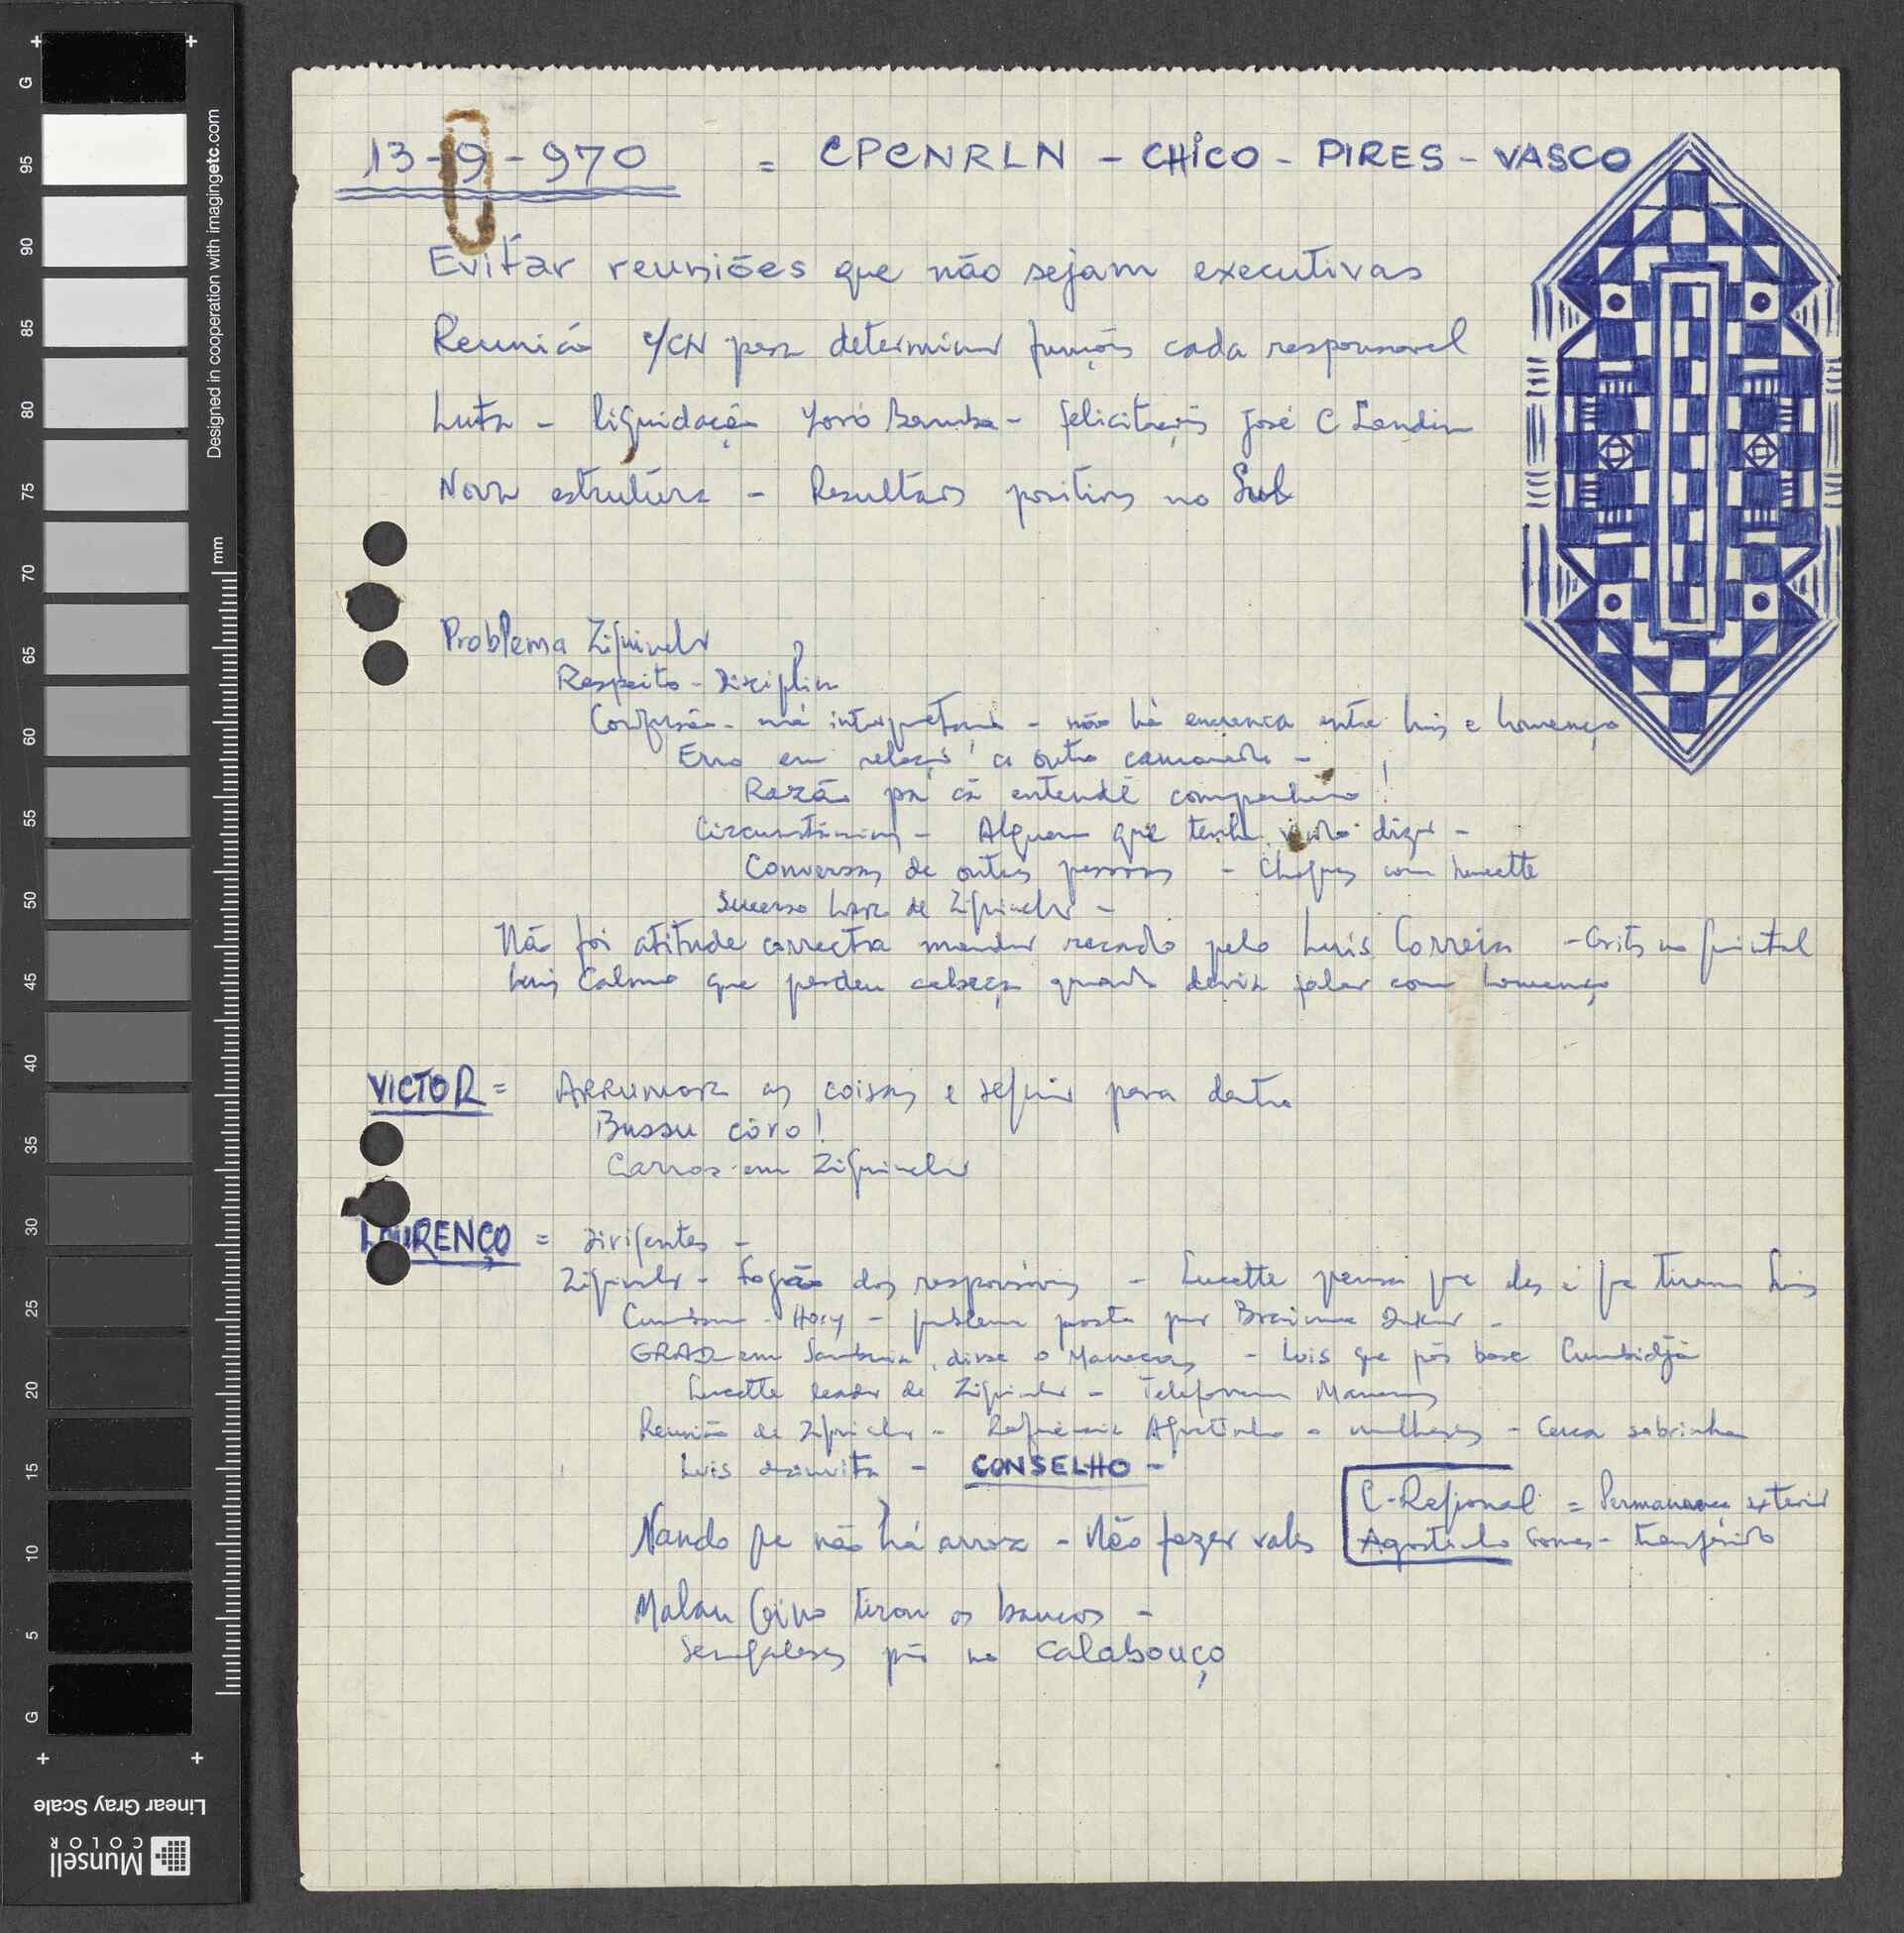 13-9-970 = CPCNRLN - CHICO - PIRES - VASCO
Evitar reuniões que não sejam executivas
Reunião c/CN para determinar funções cada responsavel
Luta - liquidação Yoró Bamba - felicitações José C Landim
Nova estrutura - Resultados positivos no Sul
Problema Ziguinchor
Respeito - Disciplina
Confusão - má interpretação - não há encrenca entre Luis e Lourenço
Erro em relação a outro camarada -
Razão pa cá entendê companheiro!
Circunstâncias - Alguem que tenha vindo dizer -
Conversas de outras pessoas - Choques com Lucette
Sucesso Lar de Ziguinchor -
Não foi atitude correcta mandar recado pelo Luís Correia - Grito no quintal
Luis Calmo que perdeu cabeça quando devia falar com Lourenço
VICTOR = Arrumar as coisas e seguir para dentro
Bussu côro!
Carros em Ziguinchor
LOURENÇO = Dirigentes -
Ziguinchor - Fogão dos responsáveis - Lucette pensa que eles é que tiram Luis
- Hoxy - problema posto por Braima
GRAD em Sambuia, disse o Manecas - Luis que pôs base Cumbidjã
Lucette leader de Ziguinchor - Telefonema Manecas
Reunião de Ziguinchor - Agostinho - mulheres - sobrinha
Luis - CONSELHO -
C-Regional = Permanencia exterior
Nando que não há arroz - Não fazer vales
Agostinho Gomes - transferido
Malan Gino tirou os bancos -
Senegaleses pôs no calabouço
G
95
90
85
80
75
70
65
60
55
50
45
40
35
30
25
20
15
10
5
G
mm
Designed in cooperation with imagingetc.com
Linear Gray Scale
Munsell
COLOR